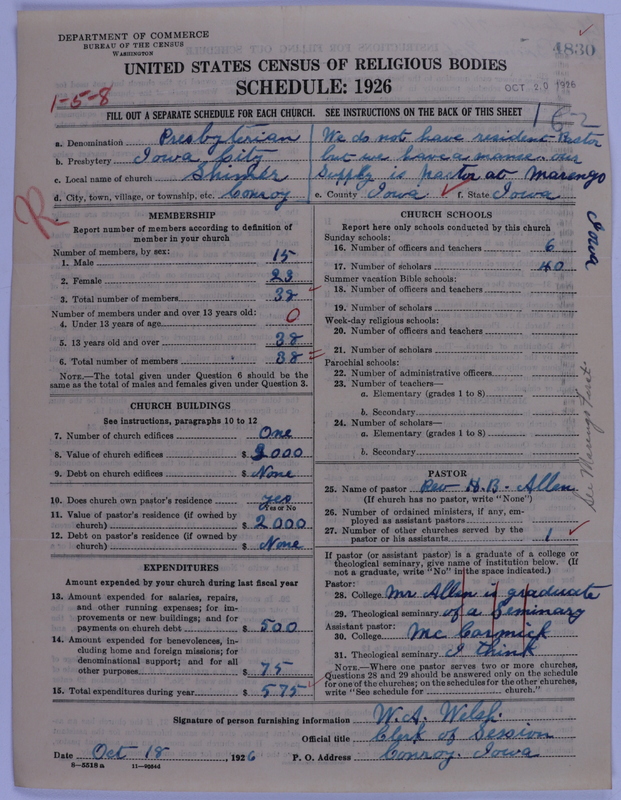 DEPARTMENT OF COMMERCE
BUREAU OF THE CENSUS
WASHINGTON
1830
UNITED STATES CENSUS OF RELIGIOUS BODIES
SCHEDULE: 1926
OCT 20 1926
1-5-8
FILL OUT A SEPARATE SCHEDULE FOR EACH CHURCH. SEE INSTRUCTIONS ON THE BACK OF THIS SHEET
a. Denomination Presbyterian
b. Presbytery Iowa City
c. Local name of church Shimer
d. City, town, village, or township, etc. Conroy
We do not have resident Pastor
but we have a manse. our
Supply is pastor at Marengo
Iowa
e. County Iowa f. State Iowa
R
MEMBERSHIP
Report number of members according to definition of
member in your church
Number of members, by sex:
1. Male 15
2. Female 23
3. Total number of members 38
Number of members under and over 13 years old:
4. Under 13 years of age 0
5. 13 years old and over 38
6. Total number of members 38
NOTE.—The total given under Question 6 should be the
same as the total of males and females given under Question 3.
CHURCH BUILDINGS
See instructions, paragraphs 10 to 12
7. Number of church edifices One
8. Value of church edifices $ 2000
9. Debt on church edifices $ None
10. Does church own pastor's residence yes
Yes or No
11. Value of pastor's residence (if owned by
church) $ 2000
12. Debt on pastor's residence (if owned by
church) $ None
EXPENDITURES
Amount expended by your church during last fiscal year
13. Amount expended for salaries, repairs,
and other running expenses; for im-
provements or new buildings; and for
payments on church debt $ 500
14. Amount expended for benevolences, in-
cluding home and foreign missions; for
denominational support; and for all
other purposes $ 75
15. Total expenditures during year $ 575
CHURCH SCHOOLS
Report here only schools conducted by this church
Sunday schools:
16. Number of officers and teachers 6
17. Number of scholars 40
Summer vacation Bible schools:
18. Number of officers and teachers
19. Number of scholars
Week-day religious schools:
20. Number of officers and teachers
21. Number of scholars
Parochial schools:
22. Number of administrative officers
23. Number of teachers—
a. Elementary (grades 1 to 8)
b. Secondary
24. Number of scholars—
a. Elementary (grades 1 to 8)
b. Secondary
PASTOR
25. Name of pastor Rev H. B. Allen
(If church has no pastor, write "None")
26. Number of ordained ministers, if any, em-
ployed as assistant pastors
27. Number of other churches served by the
pastor or his assistants 1
If pastor (or assistant pastor) is a graduate of a college or
theological seminary, give name of institution below. (If
not a graduate, write "No" in the space indicated.)
Pastor:
28. College Mr Allen is graduate
29. Theological seminary of a Seminary
Assistant pastor:
30. College Mc Cormick
31. Theological seminary I think
NOTE.—Where one pastor serves two or more churches,
Questions 28 and 29 should be answered only on the schedule
for one of the churches; on the schedules for the other churches,
write "See schedule for church."
Signature of person furnishing information W. A. Welsh
Official title Clerk of Session
Date Oct 18, 1926 P. O. Address Conroy Iowa
8-5518 a